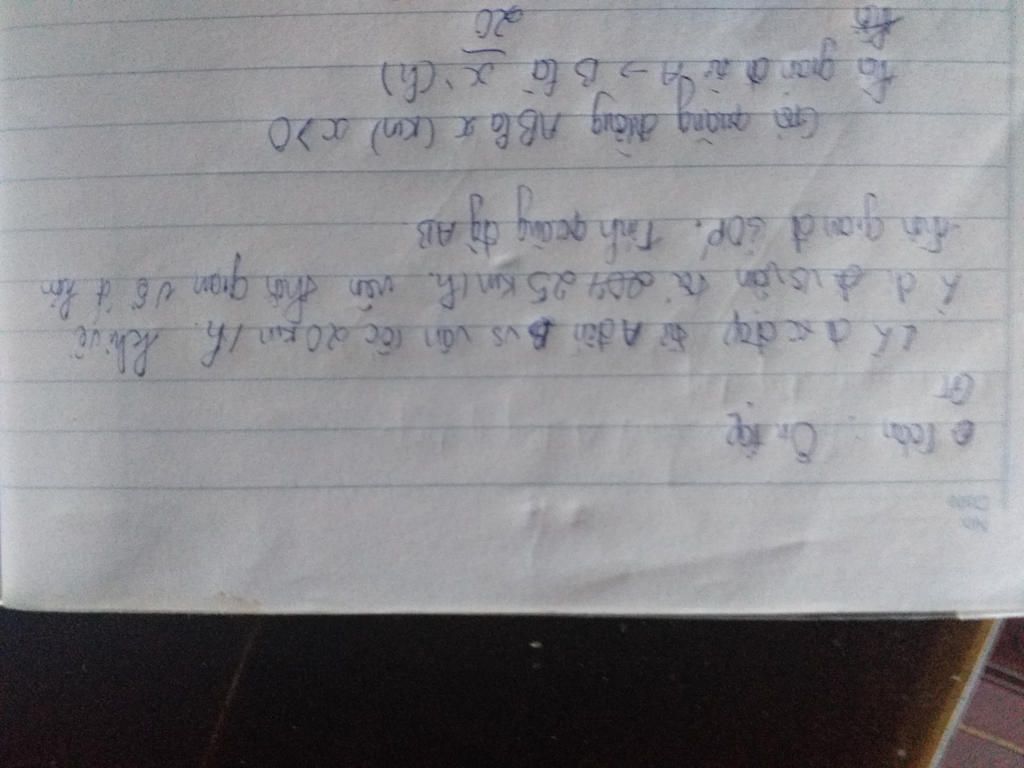 Toán : Ôn tập
GT
1 X đ xe đạp từ A đến B vs vận tốc 20 km/h. khi về
X đ vs vận tốc 25 km/h. nên thời gian về ít hơn
thời gian đi 30P. Tính quãng đg AB.
Gọi quãng đường AB là x (km) x>0
tg gian đi từ A → B là x/20 (h)